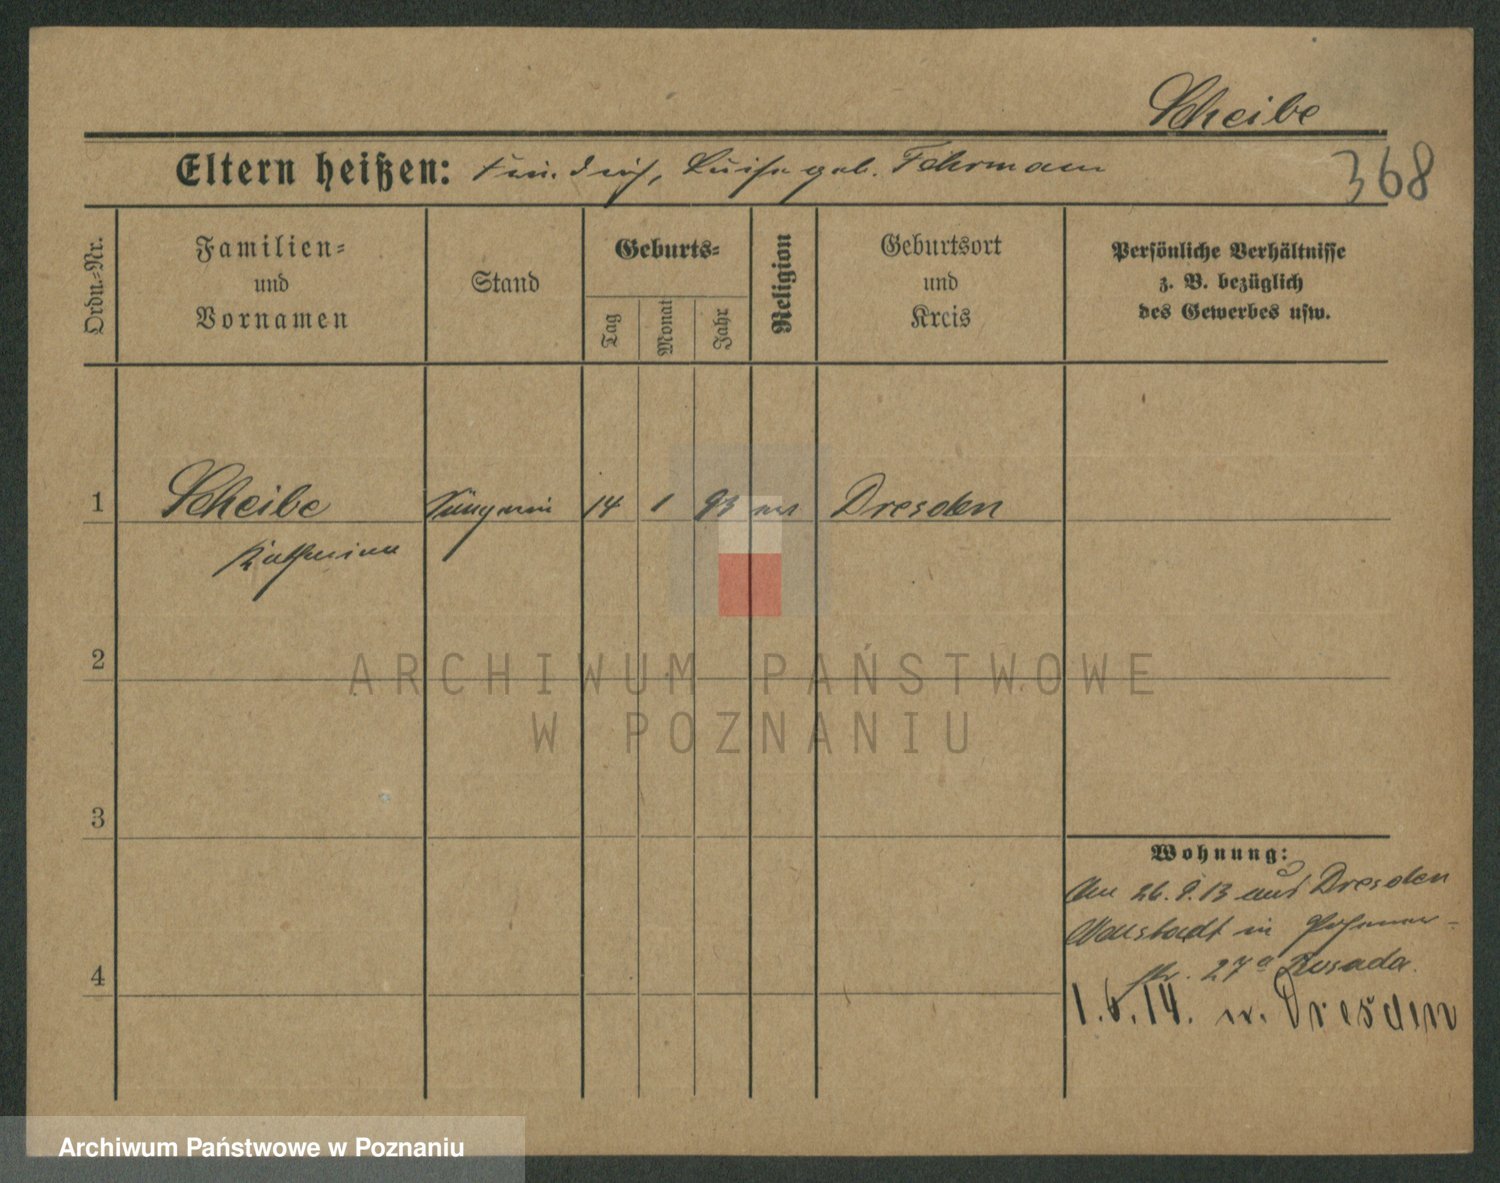 Scheibe
Eltern heißen: Friedrich, Luise geb. Fehrmann
368
Ordn.-Nr.
Familien-
und
Vornamen
Stand
Geburts-
Tag
Monat
Jahr
Religion
Geburtsort
und
Kreis
Persönliche Verhältnisse
z. B. bezüglich
des Gewerbes usw.
1 Scheibe Sängerin 14 1 93 Dresden
Katharina
2
ARCHIWUM PAŃSTWOWE
W POZNANIU
3
Wohnung:
26. 9. 13 aus Dresden
in
str. 27a
4
1. 6. 14. n. Dresden
Archiwum Państwowe w Poznaniu